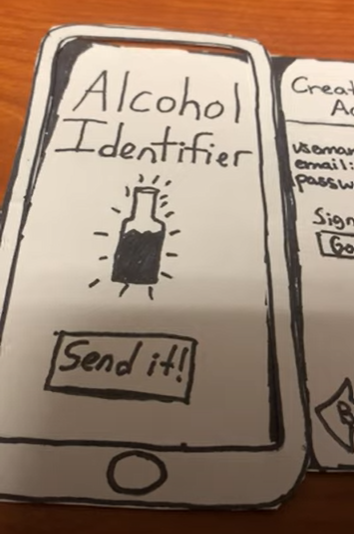 Alcohol
Identifier
Send it!
Creat
Ac
usernam
email:
passw
Sign
Go